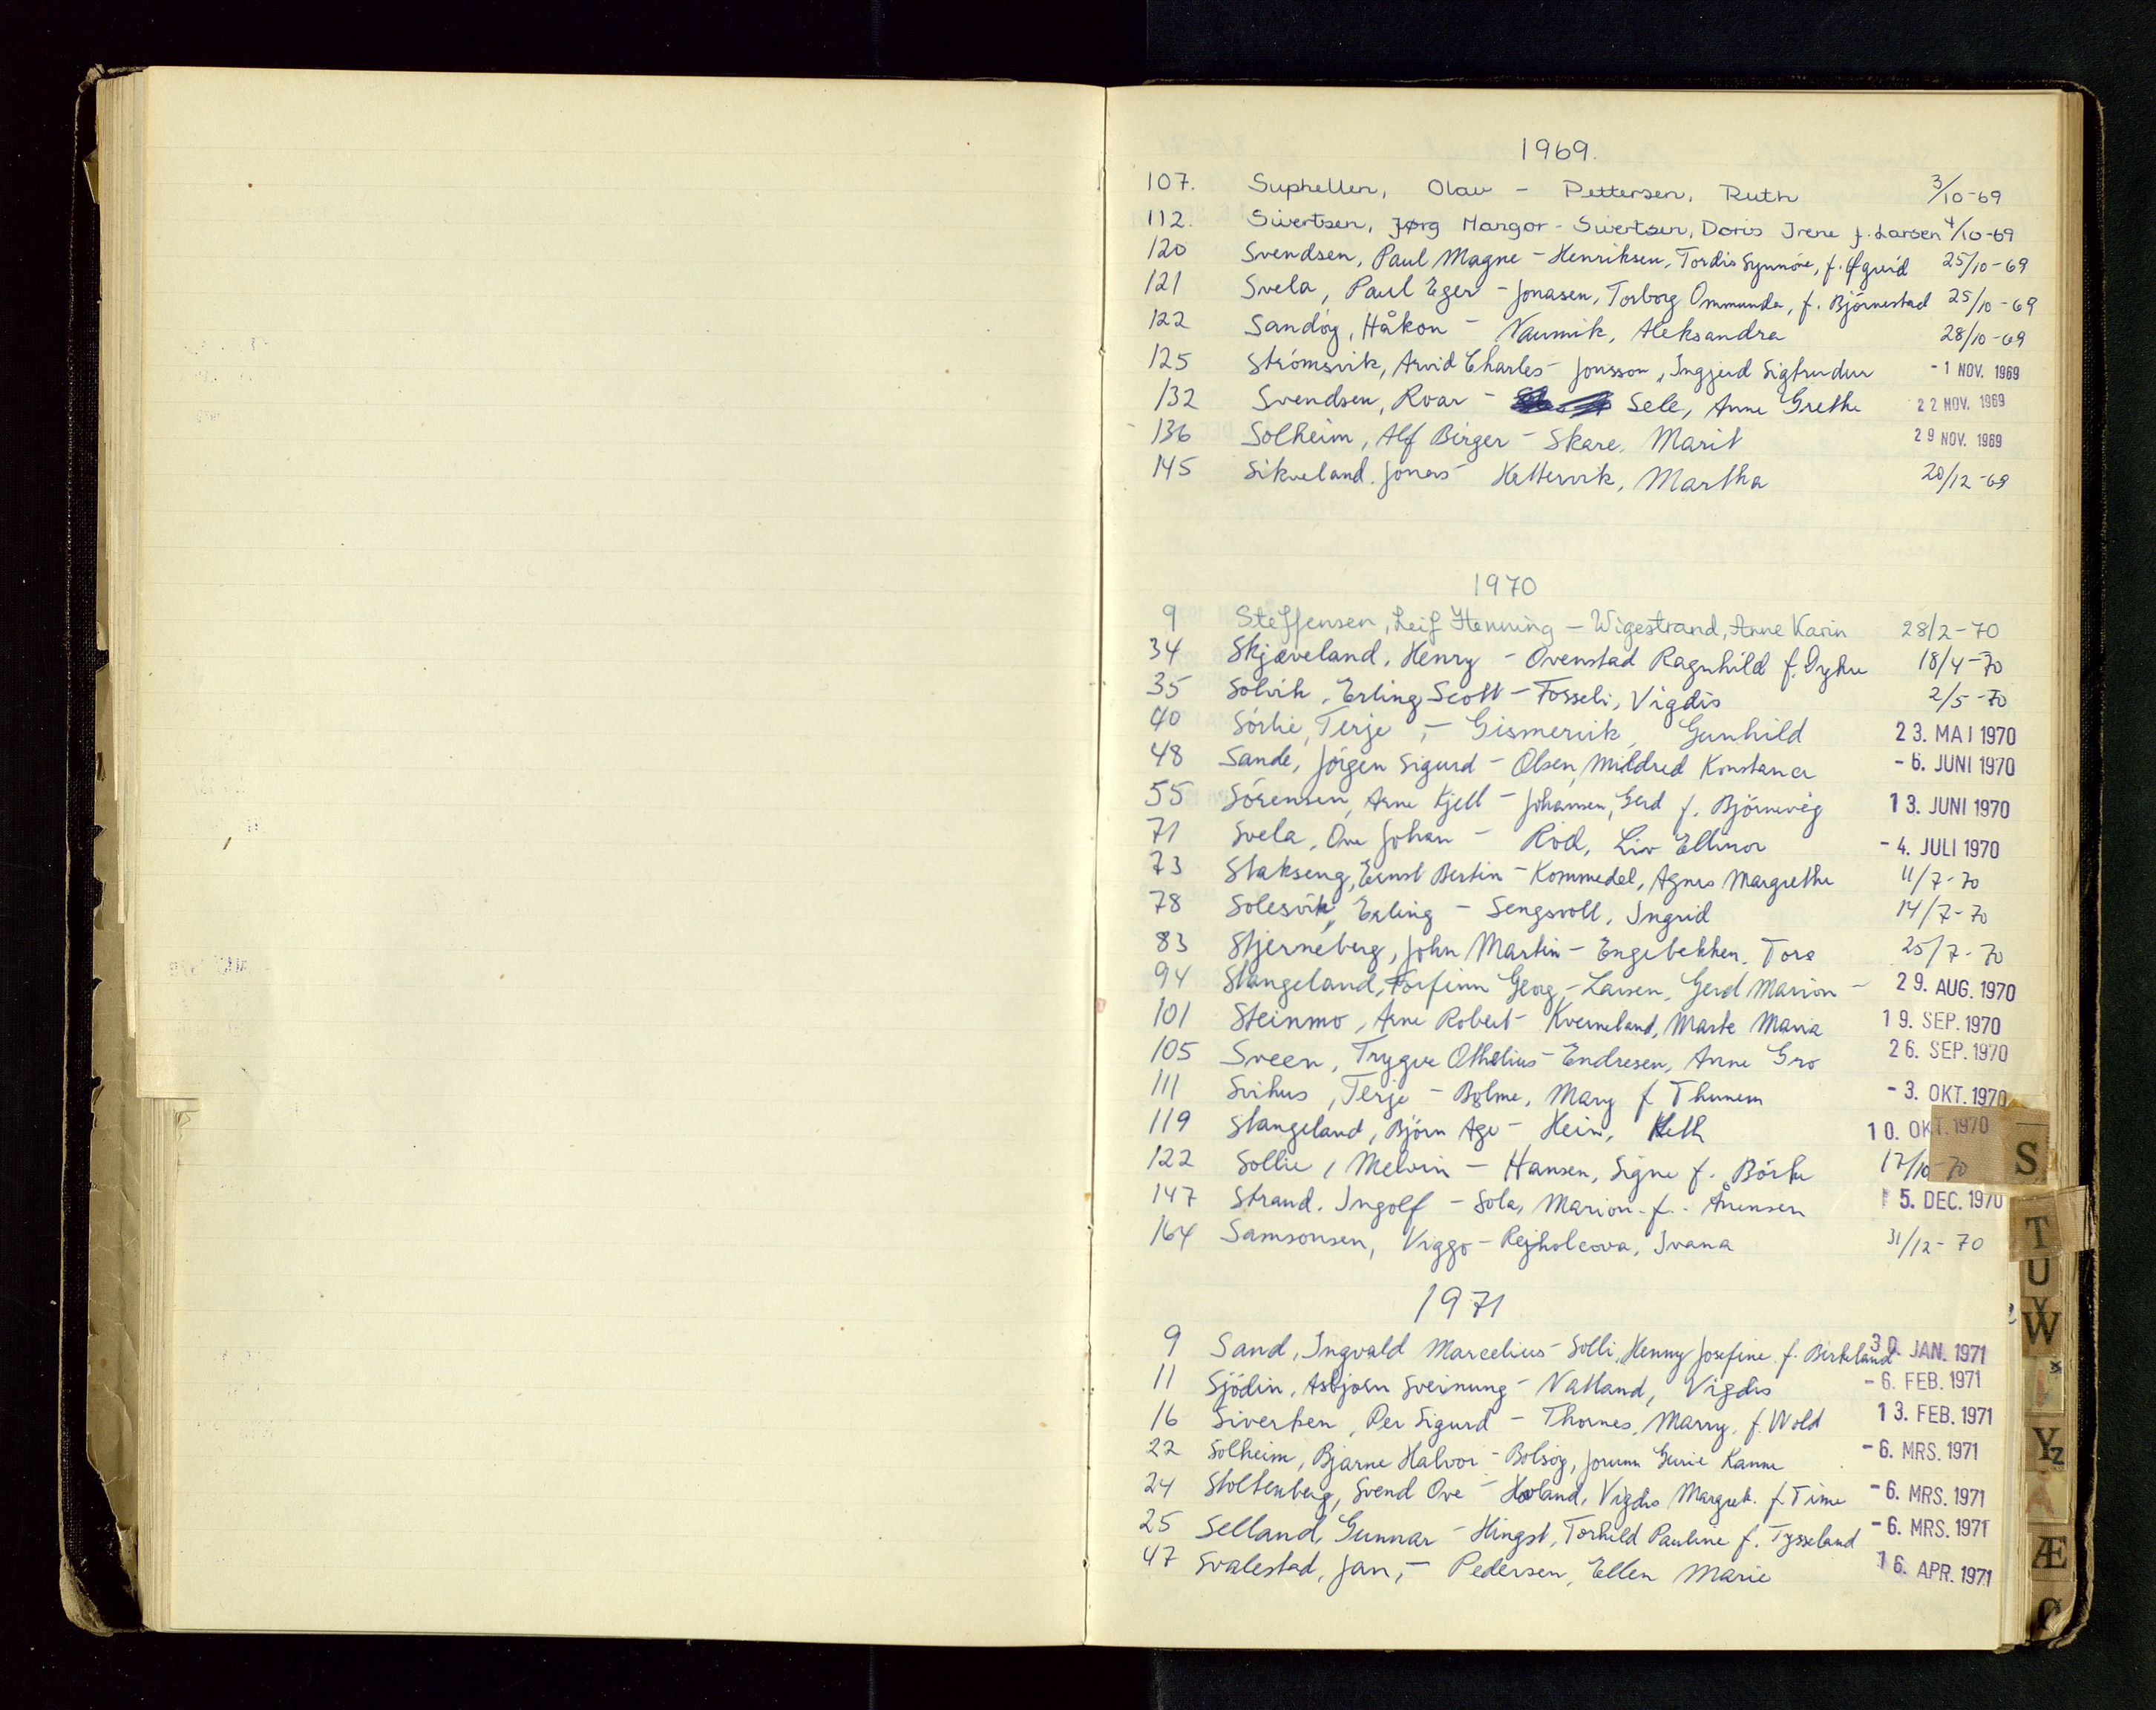 1969.
107. Suphellen, Olav - Pettersen, Ruth 3/10-69
112. Sivertsen, Jørg Mangor - Sivertsen, Doris Irene f. Larsen 4/10-69
120 Svendsen, Paul Magne - Henriksen, Tordis Synnöve, f. 25/10-69
121 Svela, Paul Eger - Jonasen, Torborg Ommunda, f. Björnestad 25/10-69
122 Sandöy, Håkon - Naumik, Aleksandra 28/10-69
125 Strömsvik, Arvid Charles - Jonsson, Ingjerd Sigtrudur - 1 NOV. 1969
132 Svendsen, Roar - Sele, Anne Grethe 22 NOV. 1969
136 Solheim, Alf Birger - Skare, Marit 29 NOV. 1969
145 Sikveland. Jonas - Hettervik, Martha 20/12-69
1970
9 Steffensen, Leif Henning - Wigestrand, Anne Karin 28/2-70
34 Skjæveland, Henry - Ovenstad Ragnhild f. 18/4-70
35 Solvik, Erling Scott - Fosseli, Vigdis 2/5-70
40 Sörlie, Terje, - Gismervik, Gunhild 23. MAI 1970
48 Sande, Jörgen Sigurd - Olsen, Mildred Konstance - 6. JUNI 1970
55 Sörensen, Arne Kjell - Johansen, Gerd f. Björnevåg 13. JUNI 1970
71 Svela, Ove Johan - Röd, Liv Ellinor - 4. JULI 1970
73 Stakseng, Ernst Bertin - Kommedal, Agnes Margrethe 11/7-70
78 Solesvik, Erling - Sengsvoll, Ingrid 14/7-70
83 Stjerneberg, John Martin - Engebakken, Tora 25/7-70
94 Stangeland, Torfinn Georg - Larsen, Gerd Marion - 29. AUG. 1970
101 Steinmo, Arne Robert - Kverneland, Marte Maria 19. SEP. 1970
105 Sveen, Trygve Othelius - Endresen, Anne Gro 26. SEP. 1970
111 Svihus, Terje - Bolme, Mary f Thunem - 3. OKT. 1970
119 Stangeland, Björn Åge - Hein, 10. OKT. 1970
122 Sollie, Melvin - Hansen, Signe f. 17/10-70
147 Strand. Ingolf - Sola, Marion. f. 5. DEC. 1970
164 Samsonsen, Viggo - Rejholcova, Ivana 31/12-70
1971
9 Sand, Ingvald Marcelius - Solli, Henny Josefine f. Birkeland 30. JAN. 1971
11 Sjödin, Asbjörn Sveinung - Natland, Vigdis - 6. FEB. 1971
16 Sivertsen, Per Sigurd - Thornes, Marry, f. Wold 13. FEB. 1971
22 Solheim, Bjarne Halvor - Bolsöy, Jorunn Gurie Kanne - 6. MRS. 1971
24 Stoltenberg, Svend Ove - Høland, Vigdis Margret. f. Time - 6. MRS. 1971
25 Selland, Gunnar - Hingst, Torhild Pauline f. Tysseland - 6. MRS. 1971
47 Svalestad, Jan, - Pedersen, Ellen Marie 16. APR. 1971
S
T
U
V
W
Y
Z
Æ